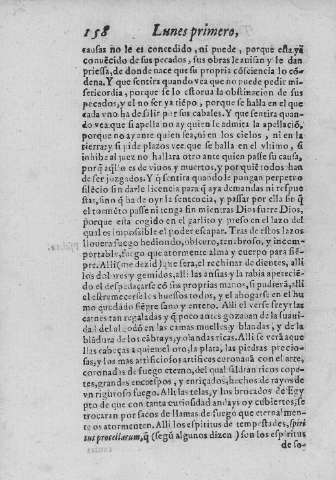 158 Lunes primero,
causas no le es concedido, ni puede, porque esta ya
conuēcido de sus pecados, sus obras le auisan y le dan
priessa, de donde nace que su propria cōsciencia lo cō-
dena. Y que sentira quando vea que no puede pedir mi-
sericordia, porque se lo estorua la obstinacion de sus
pecados, y el no ser ya tiēpo, porque se halla en el que
cada vno ha de salir por sus cabales. Y que sentira quan-
do vea que si apella no ay quien le admita la apellaciō,
porque no ay ante quien sea, ni en los cielos, ni en la
tierra: y si pide plazos vee que se halla en el vltimo, si
inhibe al juez no hallara otro ante quien passe su causa,
porq̄ aq̄llo es de viuos y muertos, y por quiē todos han
de ser juzgados. Y q̄ sentira quando le pongan perpetuo
silēcio sin darle licencia para q̄ aya demandas ni respue
stas, sino q̄ ha de oyr la sentēcia, y passar por ella sin q̄
el tormēto passe ni tenga fin mientras Dios fuere Dios,
porque esta cogido en el garlito y preso en el lazo del
qual es impossible el poder escapar. Tras de estos lazos
llouera fuego hediondo, obscuro, tenebroso, y incom-
portable, fuego que atormente alma y cuerpo para siē-
pre. Alli (me dezid) que sera, el rechinar de dientes, alli
los dolores y gemidos, alli las ansias y la rabia aperecié-
do el despedaçarse cō sus propias manos, si pudiera, alli
el estremecerse los huessos todos, y el ahogarse en el hu
mo quedādo siēpre sano y entero. Alli el verse freyr las
carnes tan regaladas y q̄ poco antes gozauan de la suaui-
dad del algodō en las camas muelles y blandas, y de la
blādura de los cābrays, y olandas ricas. Alli se verā aque
llas cabeças a quien el oro, la plata, las piedras precio-
sas, y los mas artificiosos artifices coronauā con el arte,
coronadas de fuego eterno, del qual saldran ricos cope-
tes, grandes encrespos, y enriçados, hechos de rayos de
vn riguroso fuego. Alli las telas, y los brocados de Egy
pto de que con tanta curiosidad andays oy cubiertos, se
trocaran por sacos de llamas de fuego que eternalmen-
te os atormenten. Alli los espiritus de tempestades, spiri
tus procellarum, q̄ (segū algunos dizen) son los espiritus
de so-